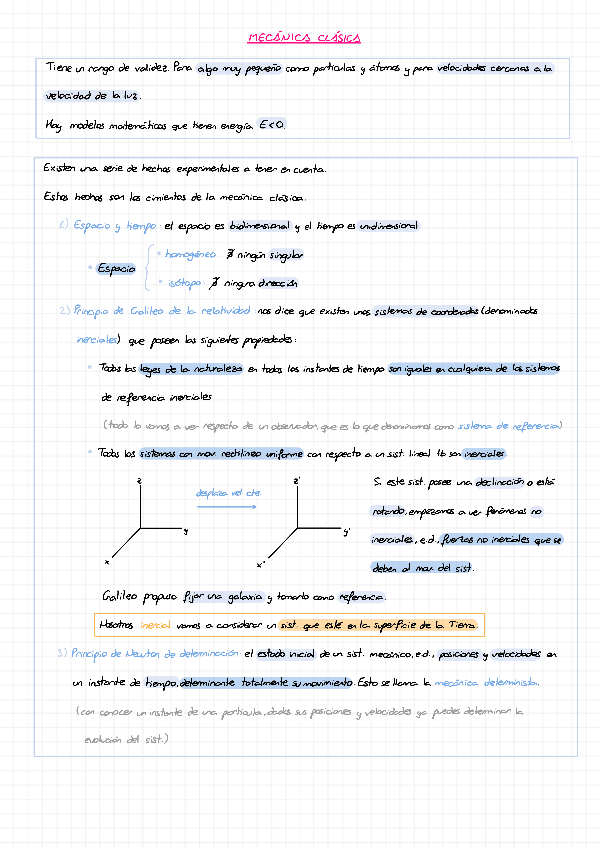 MECÁNICA CLÁSICA
Tiene un rango de validez. Para algo muy pequeño como partículas y átomos y para velocidades cercanas a la
velocidad de la luz.
Hay modelos matemáticos que tienen energía E<0.
Existen una serie de hechos experimentales a tener en cuenta.
Estos hechos son los cimientos de la mecánica clásica.
1) Espacio y tiempo: el espacio es bidimensional y el tiempo es unidimensional
* homogéneo ∄ ningún singular
* Espacio
* isótopo: ∄ ninguna dirección
2) Principio de Galileo de la relatividad: nos dice que existen unos sistemas de coordenadas (denominados
inerciales) que poseen las siguientes propiedades:
* Todas las leyes de la naturaleza en todos los instantes de tiempo son iguales en cualquiera de los sistemas
de referencia inerciales
(todo lo vamos a ver respecto de un observador, que es lo que denominamos como sistema de referencia)
* Todos los sistemas con mov. rectilíneo uniforme con respecto a un sist. lineal tb son inerciales.
z
desplaza vel cte.
z'
y
y'
x
x'
Si este sist. posee una declinación o está
rotando, empezamos a ver fenómenos no
inerciales, e.d., fuerzas no inerciales que se
deben al mov. del sist.
Galileo propuso fijar una galaxia y tomarlo como referencia.
Nosotros inercial vamos a considerar un sist. que esté en la superficie de la Tierra.
3) Principio de Newton de determinación: el estado inicial de un sist. mecánico, e.d., posiciones y velocidades en
un instante de tiempo, determinante totalmente su movimiento. Esto se llama la mecánica determinista.
(con conocer un instante de una partícula, dadas sus posiciones y velocidades ya puedes determinar la
evolución del sist.)